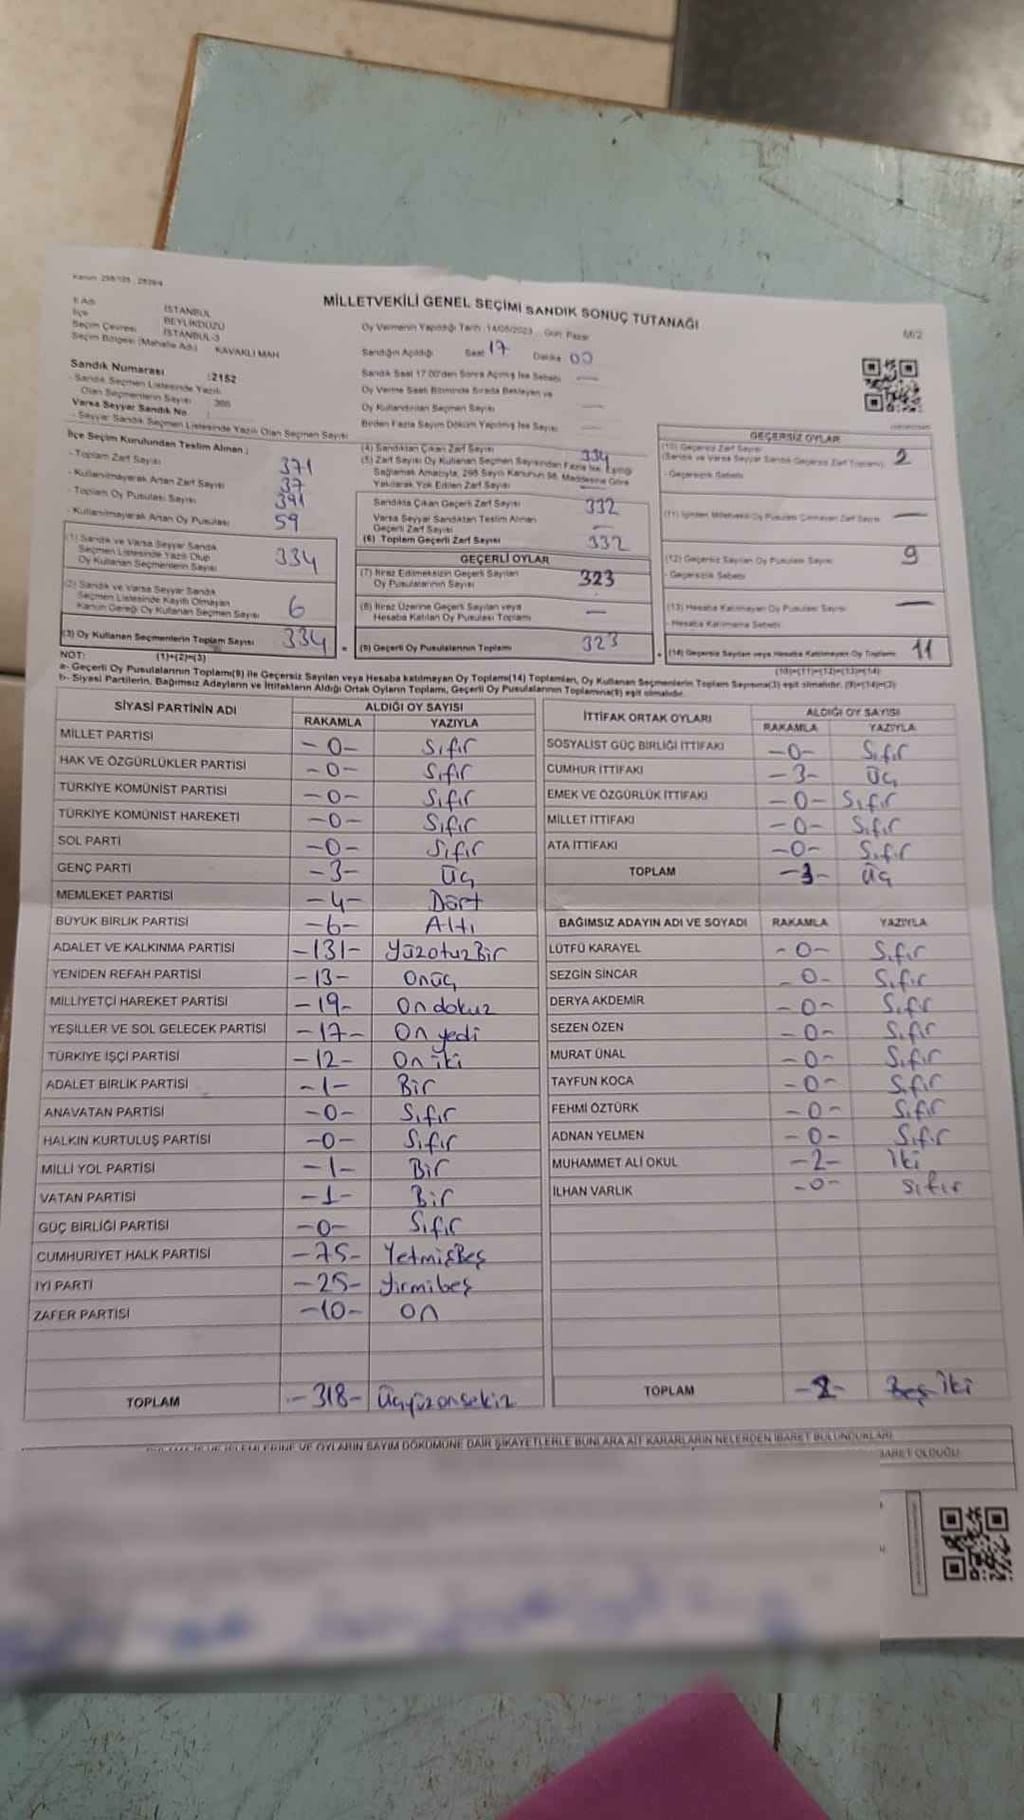 MİLLETVEKİLİ GENEL SEÇİMİ SANDIK SONUÇ TUTANAĞI
İl Adı İSTANBUL
İlçe BEYLİKDÜZÜ
Seçim Çevresi İSTANBUL-3
Seçim Bölgesi (Mahalle Adı) KAVAKLI MAH
Oy Vermenin Yapıldığı Tarih: 14/05/2023 Gün: Pazar
Sandığın Açıldığı Saat 17 Dakika 00
Sandık Saat 17:00'den Sonra Açılmış İse Sebebi —
Oy Verme Saati Bitiminde Sırada Bekleyen ve
Oy Kullandırılan Seçmen Sayısı —
Birden Fazla Sayım Döküm Yapılmış İse Sayısı —
Sandık Numarası :2152
- Sandık Seçmen Listesinde Yazılı
Olan Seçmenlerin Sayısı 366
Varsa Seyyar Sandık No
- Seyyar Sandık Seçmen Listesinde Yazılı Olan Seçmen Sayısı
İlçe Seçim Kurulundan Teslim Alınan ;
- Toplam Zarf Sayısı 371
- Kullanılmayarak Artan Zarf Sayısı 37
- Toplam Oy Pusulası Sayısı 391
- Kullanılmayarak Artan Oy Pusulası 59
(1) Sandık ve Varsa Seyyar Sandık
Seçmen Listesinde Yazılı Olup
Oy Kullanan Seçmenlerin Sayısı 334
(2) Sandık ve Varsa Seyyar Sandık
Seçmen Listesinde Kayıtlı Olmayan
Kanun Gereği Oy Kullanan Seçmen Sayısı 6
(3) Oy Kullanan Seçmenlerin Toplam Sayısı 334
(1)+(2)=(3)
(4) Sandıktan Çıkan Zarf Sayısı 334
(5) Zarf Sayısı Oy Kullanan Seçmen Sayısından Fazla İse, Eşitliği
Sağlamak Amacıyla, 298 Sayılı Kanunun 98. Maddesine Göre
Yakılarak Yok Edilen Zarf Sayısı —
Sandıkta Çıkan Geçerli Zarf Sayısı 332
Varsa Seyyar Sandıktan Teslim Alınan
Geçerli Zarf Sayısı —
(6) Toplam Geçerli Zarf Sayısı 332
GEÇERLİ OYLAR
(7) İtiraz Edilmeksizin Geçerli Sayılan
Oy Pusulalarının Sayısı 323
(8) İtiraz Üzerine Geçerli Sayılan veya
Hesaba Katılan Oy Pusulası Toplamı —
(9) Geçerli Oy Pusulalarının Toplamı 323
GEÇERSİZ OYLAR
(10) Geçersiz Zarf Sayısı
(Sandık ve Varsa Seyyar Sandık Geçersiz Zarf Toplamı) 2
- Geçersizlik Sebebi
(11) İçinden Milletvekili Oy Pusulası Çıkmayan Zarf Sayısı —
(12) Geçersiz Sayılan Oy Pusulası Sayısı 9
- Geçersizlik Sebebi
(13) Hesaba Katılmayan Oy Pusulası Sayısı —
- Hesaba Katılmama Sebebi
(14) Geçersiz Sayılan veya Hesaba Katılmayan Oy Toplamı 11
(10)+(11)+(12)+(13)=(14)
NOT:
a- Geçerli Oy Pusulalarının Toplamı(9) ile Geçersiz Sayılan veya Hesaba katılmayan Oy Toplamı(14) Toplamları, Oy Kullanan Seçmenlerin Toplam Sayısına(3) eşit olmalıdır. (9)+(14)=(3)
b- Siyasi Partilerin, Bağımsız Adayların ve İttifakların Aldığı Ortak Oyların Toplamı, Geçerli Oy Pusulalarının Toplamına(9) eşit olmalıdır.
SİYASİ PARTİNİN ADI ALDIĞI OY SAYISI
RAKAMLA YAZIYLA
MİLLET PARTİSİ -0- Sıfır
HAK VE ÖZGÜRLÜKLER PARTİSİ -0- Sıfır
TÜRKİYE KOMÜNİST PARTİSİ -0- Sıfır
TÜRKİYE KOMÜNİST HAREKETİ -0- Sıfır
SOL PARTİ -0- Sıfır
GENÇ PARTİ -3- Üç
MEMLEKET PARTİSİ -4- Dört
BÜYÜK BİRLİK PARTİSİ -6- Altı
ADALET VE KALKINMA PARTİSİ -131- YüzotuzBir
YENİDEN REFAH PARTİSİ -13- Onüç
MİLLİYETÇİ HAREKET PARTİSİ -19- On dokuz
YEŞİLLER VE SOL GELECEK PARTİSİ -17- On yedi
TÜRKİYE İŞÇİ PARTİSİ -12- On iki
ADALET BİRLİK PARTİSİ -1- Bir
ANAVATAN PARTİSİ -0- Sıfır
HALKIN KURTULUŞ PARTİSİ -0- Sıfır
MİLLİ YOL PARTİSİ -1- Bir
VATAN PARTİSİ -1- Bir
GÜÇ BİRLİĞİ PARTİSİ -0- Sıfır
CUMHURİYET HALK PARTİSİ -75- YetmişBeş
İYİ PARTİ -25- Yirmibeş
ZAFER PARTİSİ -10- On
TOPLAM -318- Üçyüzonsekiz
İTTİFAK ORTAK OYLARI ALDIĞI OY SAYISI
RAKAMLA YAZIYLA
SOSYALİST GÜÇ BİRLİĞİ İTTİFAKI -0- Sıfır
CUMHUR İTTİFAKI -3- Üç
EMEK VE ÖZGÜRLÜK İTTİFAKI -0- Sıfır
MİLLET İTTİFAKI -0- Sıfır
ATA İTTİFAKI -0- Sıfır
TOPLAM -3- Üç
BAĞIMSIZ ADAYIN ADI VE SOYADI RAKAMLA YAZIYLA
LÜTFÜ KARAYEL -0- Sıfır
SEZGİN SİNCAR -0- Sıfır
DERYA AKDEMİR -0- Sıfır
SEZEN ÖZEN -0- Sıfır
MURAT ÜNAL -0- Sıfır
TAYFUN KOCA -0- Sıfır
FEHMİ ÖZTÜRK -0- Sıfır
ADNAN YELMEN -0- Sıfır
MUHAMMET ALİ OKUL -2- İki
İLHAN VARLIK -0- Sıfır
TOPLAM -2- İki
OYLARIN SAYIM DÖKÜMÜNE DAİR ŞİKAYETLERLE BUNLARA AİT KARARLARIN NELERDEN İBARET BULUNDUKLARI